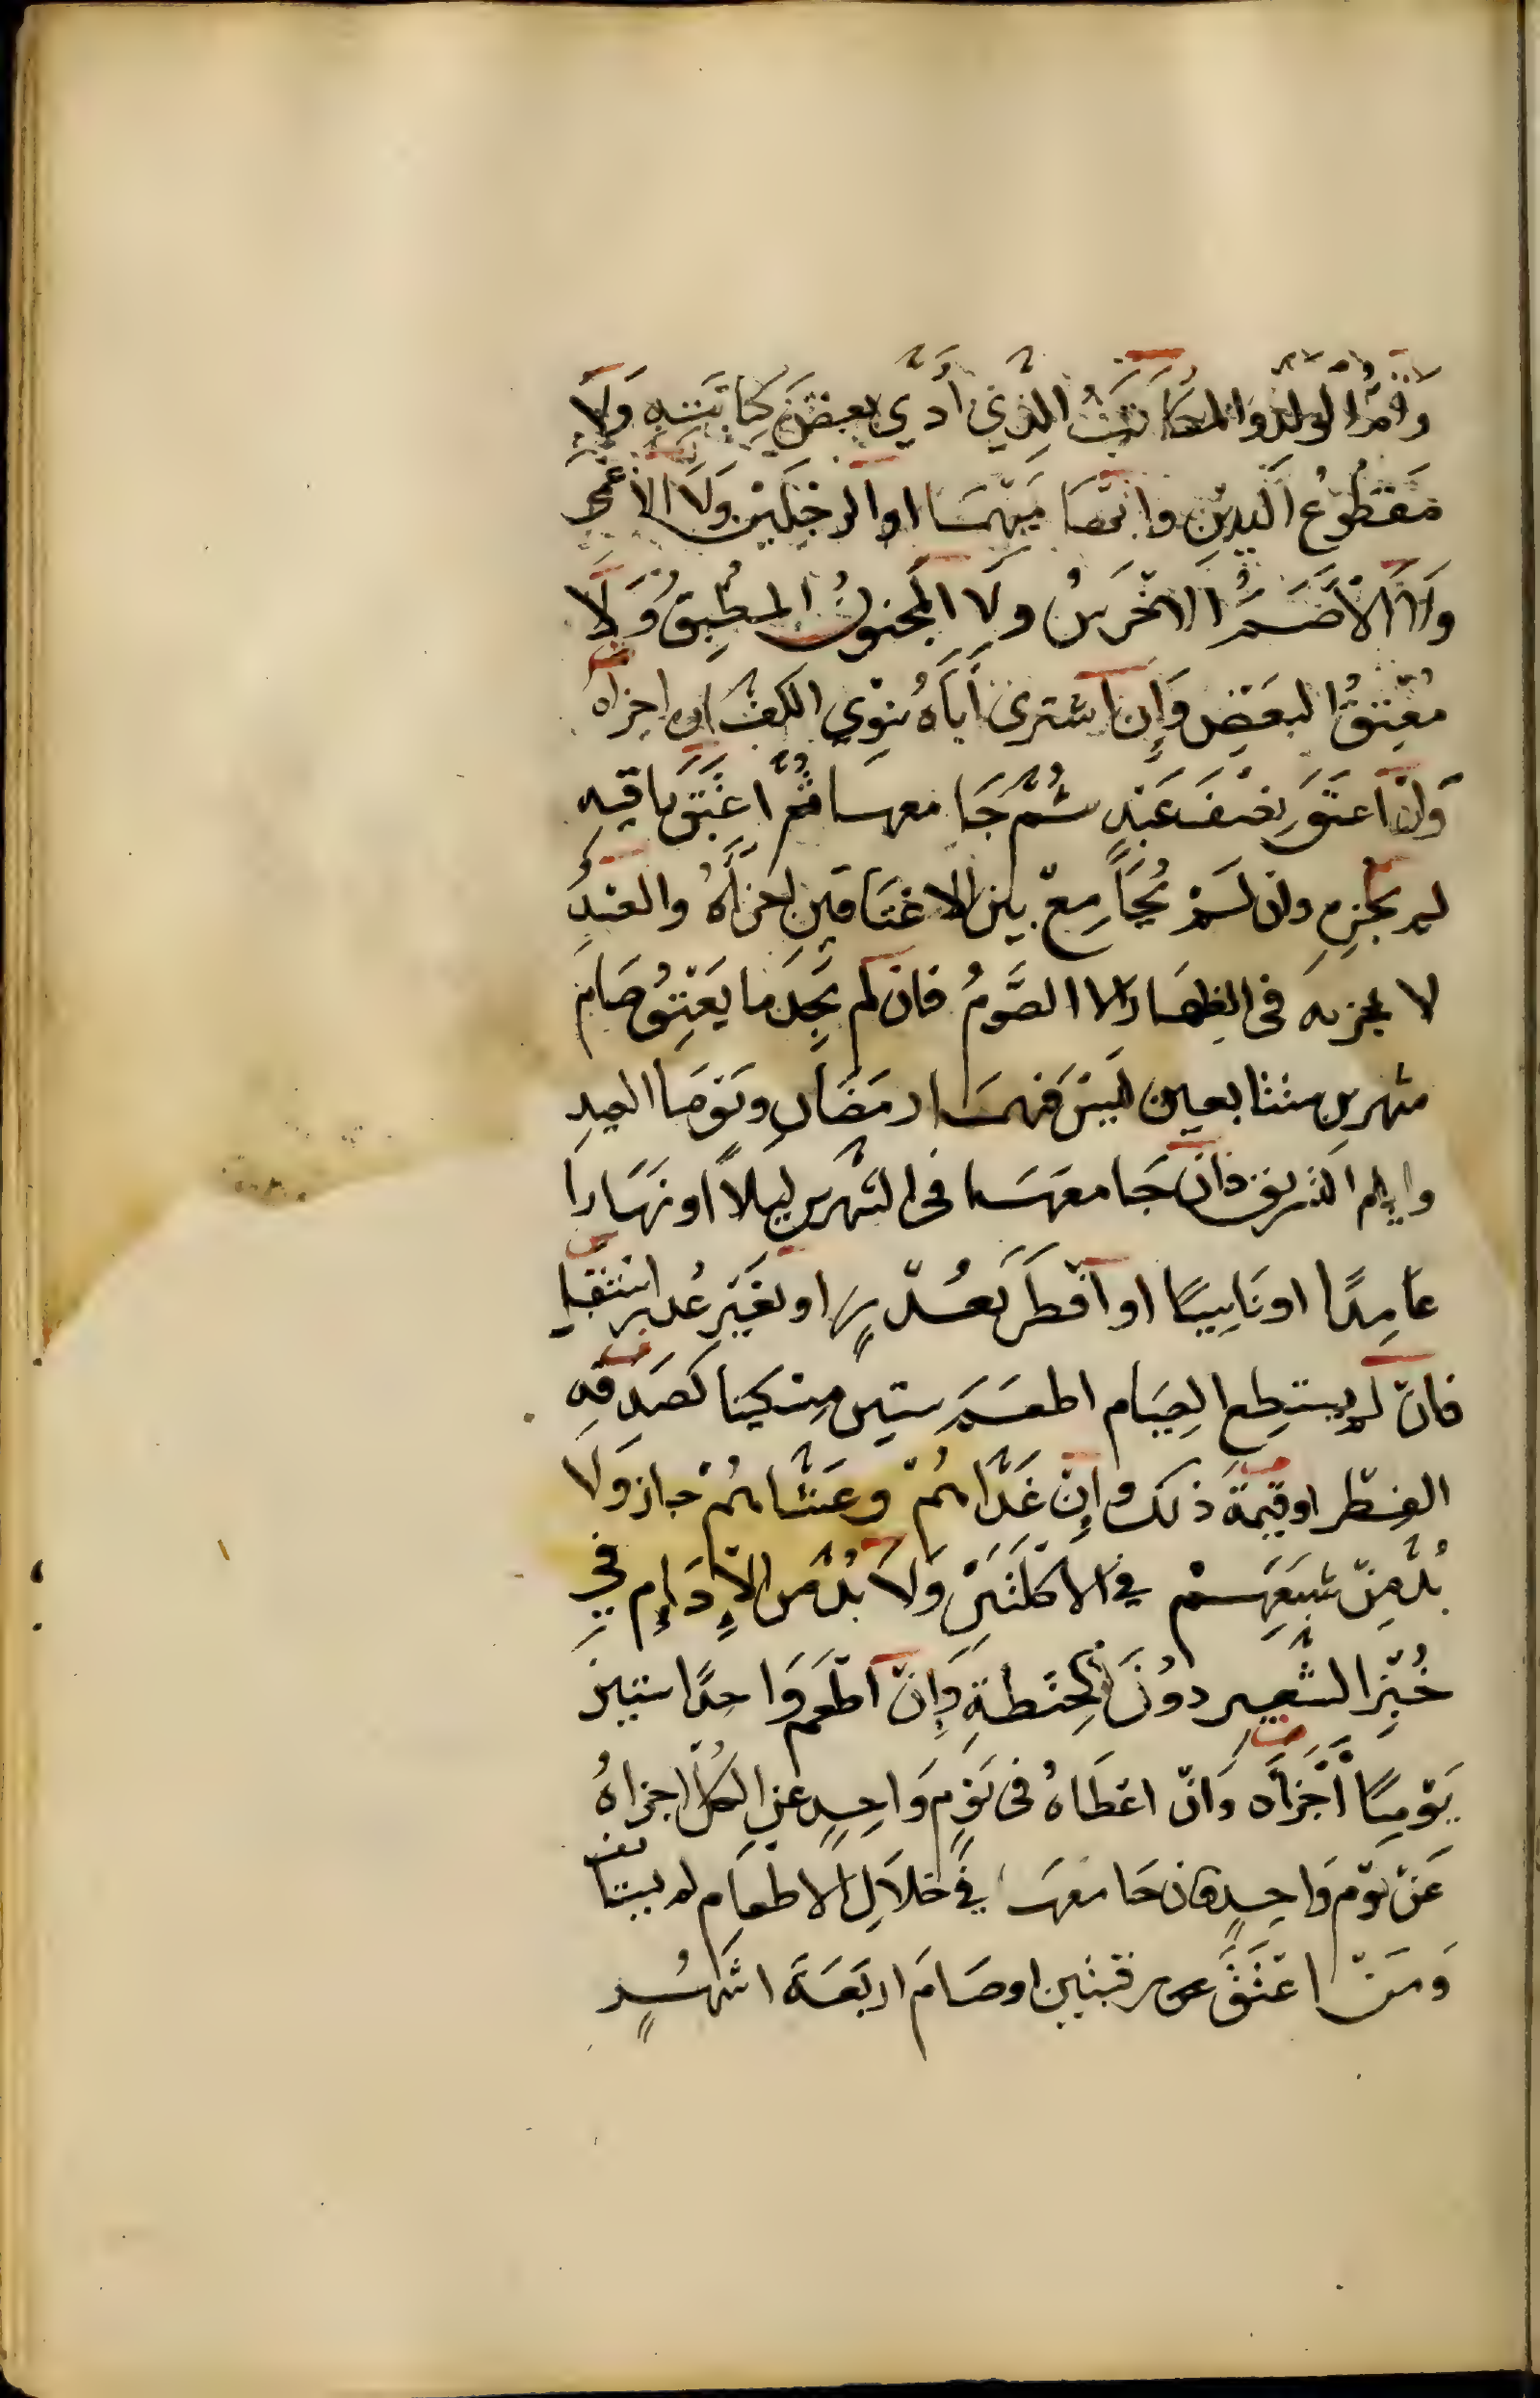 وَاُمُّ الْولدِ وَالمكَاتَبُ الَّذِي أدّى بعضَ كِتابَتِهِ وَلاَ
مَقطُوعُ اليَدَيْنِ وابْهَامَيْهِمَا او الرِجْلَيْنِ وَلاَ الاعْمَى
وَلاَ الاَصَمُّ الاخْرَسُ ولا المجنونُ المطْبِقُ وَلاَ
مُعْتَقُ البَعْضِ وَإِن اشترى أَبَاهُ يَنْوِي الكفارة اجزاه
وَانْ اعتقَ نصْفَ عَبْدٍ ثُمَّ جَامعها ثُمَّ اعْتَقَ باقيه
لم يُجْزِهِ وان لَمْ يُجَامِعْ بين الاعْتَاقَيْنِ اجزأهُ والعَبْدُ
لا يجزيه فى الظِهَار الا الصَّومُ فان لم يَجِدْ ما يَعْتِقُ صَامَ
شهرين متتابعين لَيْسَ فيهمَا رمَضَان ويَوْمَا العيدِ
وايام التشريق فان جَامعَهَا فى الشهرين ليلاً او نَهَاراً
عَامِدًا او نَاسِيًا او اَفْطَرَ بِعُذْرٍ او بغَيْرِ عُذرٍ استقبل
فان لم يستطِع الصِيَام اطعمَ ستين مِسْكينا كَصَدقَةِ
الفِطْر او قِيمَةَ ذلك وإن غَدَّاهُمْ وعَشَّاهُمْ جاز وَلا
بُدَّ مِنْ شِبَعِهِمْ فِي الاكلَتَيْنِ وَلاَ بُدَّ مِن الإِدَامِ فِي
خُبْزِ الشَّعِير دوُنَ الحِنْطَةِ وَإِنْ اَطْعَمَ وَاحِدًا ستين
يَوْمًا أَجْزَاَه وَانْ اعْطَاهُ فى يَوْمٍ وَاحِدٍ عن الكُلِّ اجزاهُ
عَنْ يَوْم وَاحِدٍ فان جَامعهَا فِي خلاَلِ الاطعَامِ لم يستانف
وَمَنْ اعْتَقَ عن رقبتين اوصَامَ اربَعَةَ اشْهُرٍ